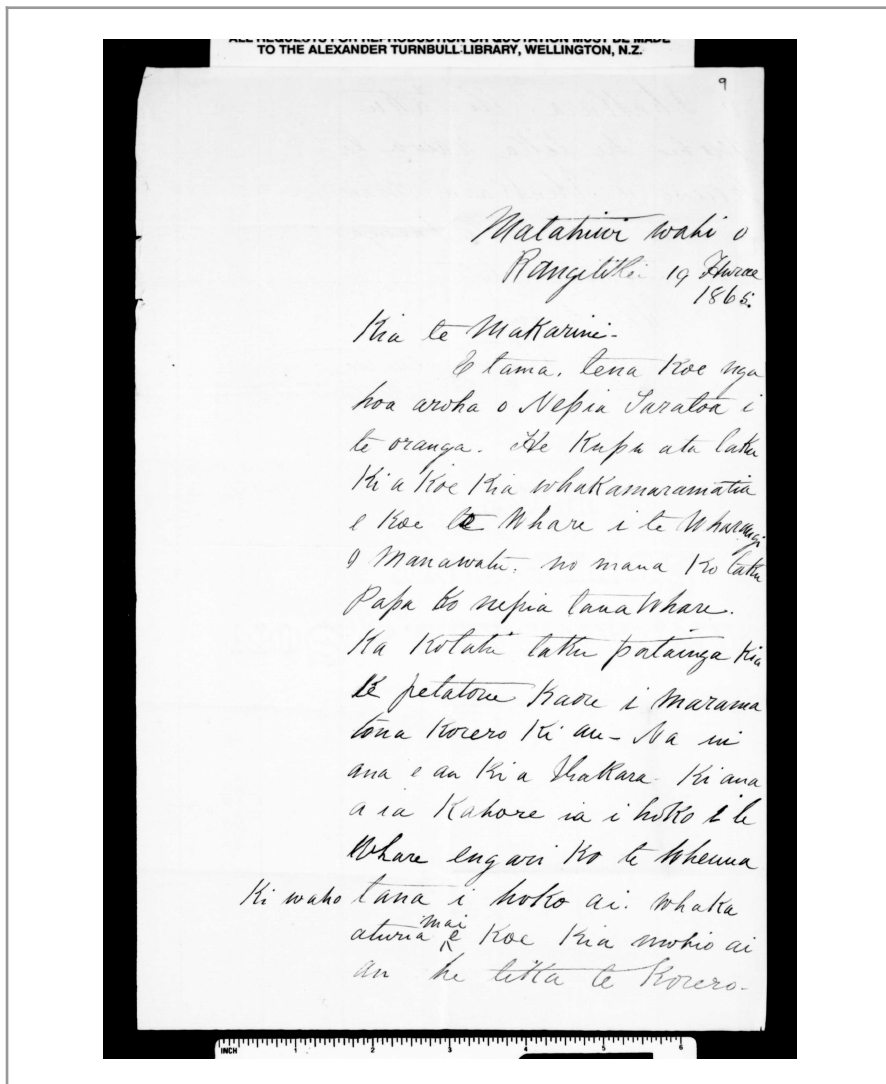 ALL REQUESTS FOR REPRODUCTION OR QUOTATION MUST BE MADE
TO THE ALEXANDER TURNBULL LIBRARY, WELLINGTON, N.Z.
9
Matahiwi wahi o
Rangitikei 19 Hurae
1865.
Kia te Makarini-
E tama. tena koe nga
hoa aroha o Nepia Taratoa i
te oranga. He Kupu ata taku
Ki a Koe Kia whakamaramatia
e Koe te Whare i te Wharangi
o Manawatu. no mana Ko taku
Papa Ko nepia tana Whare.
Ka Kotahi taku patainga Kia
te petatone Kaore i marama
tona Korero Ki au- Na ui
ana e au Ki a Ihakara- Ki ana
a ia Kahore ia i hoko i te
Whare engari Ko te Whenua
Ki waho tana i hoko ai. whaka
aturia mai e Koe Kia mohio ai
au he tika te Korero-
INCH 1 2 3 4 5 6